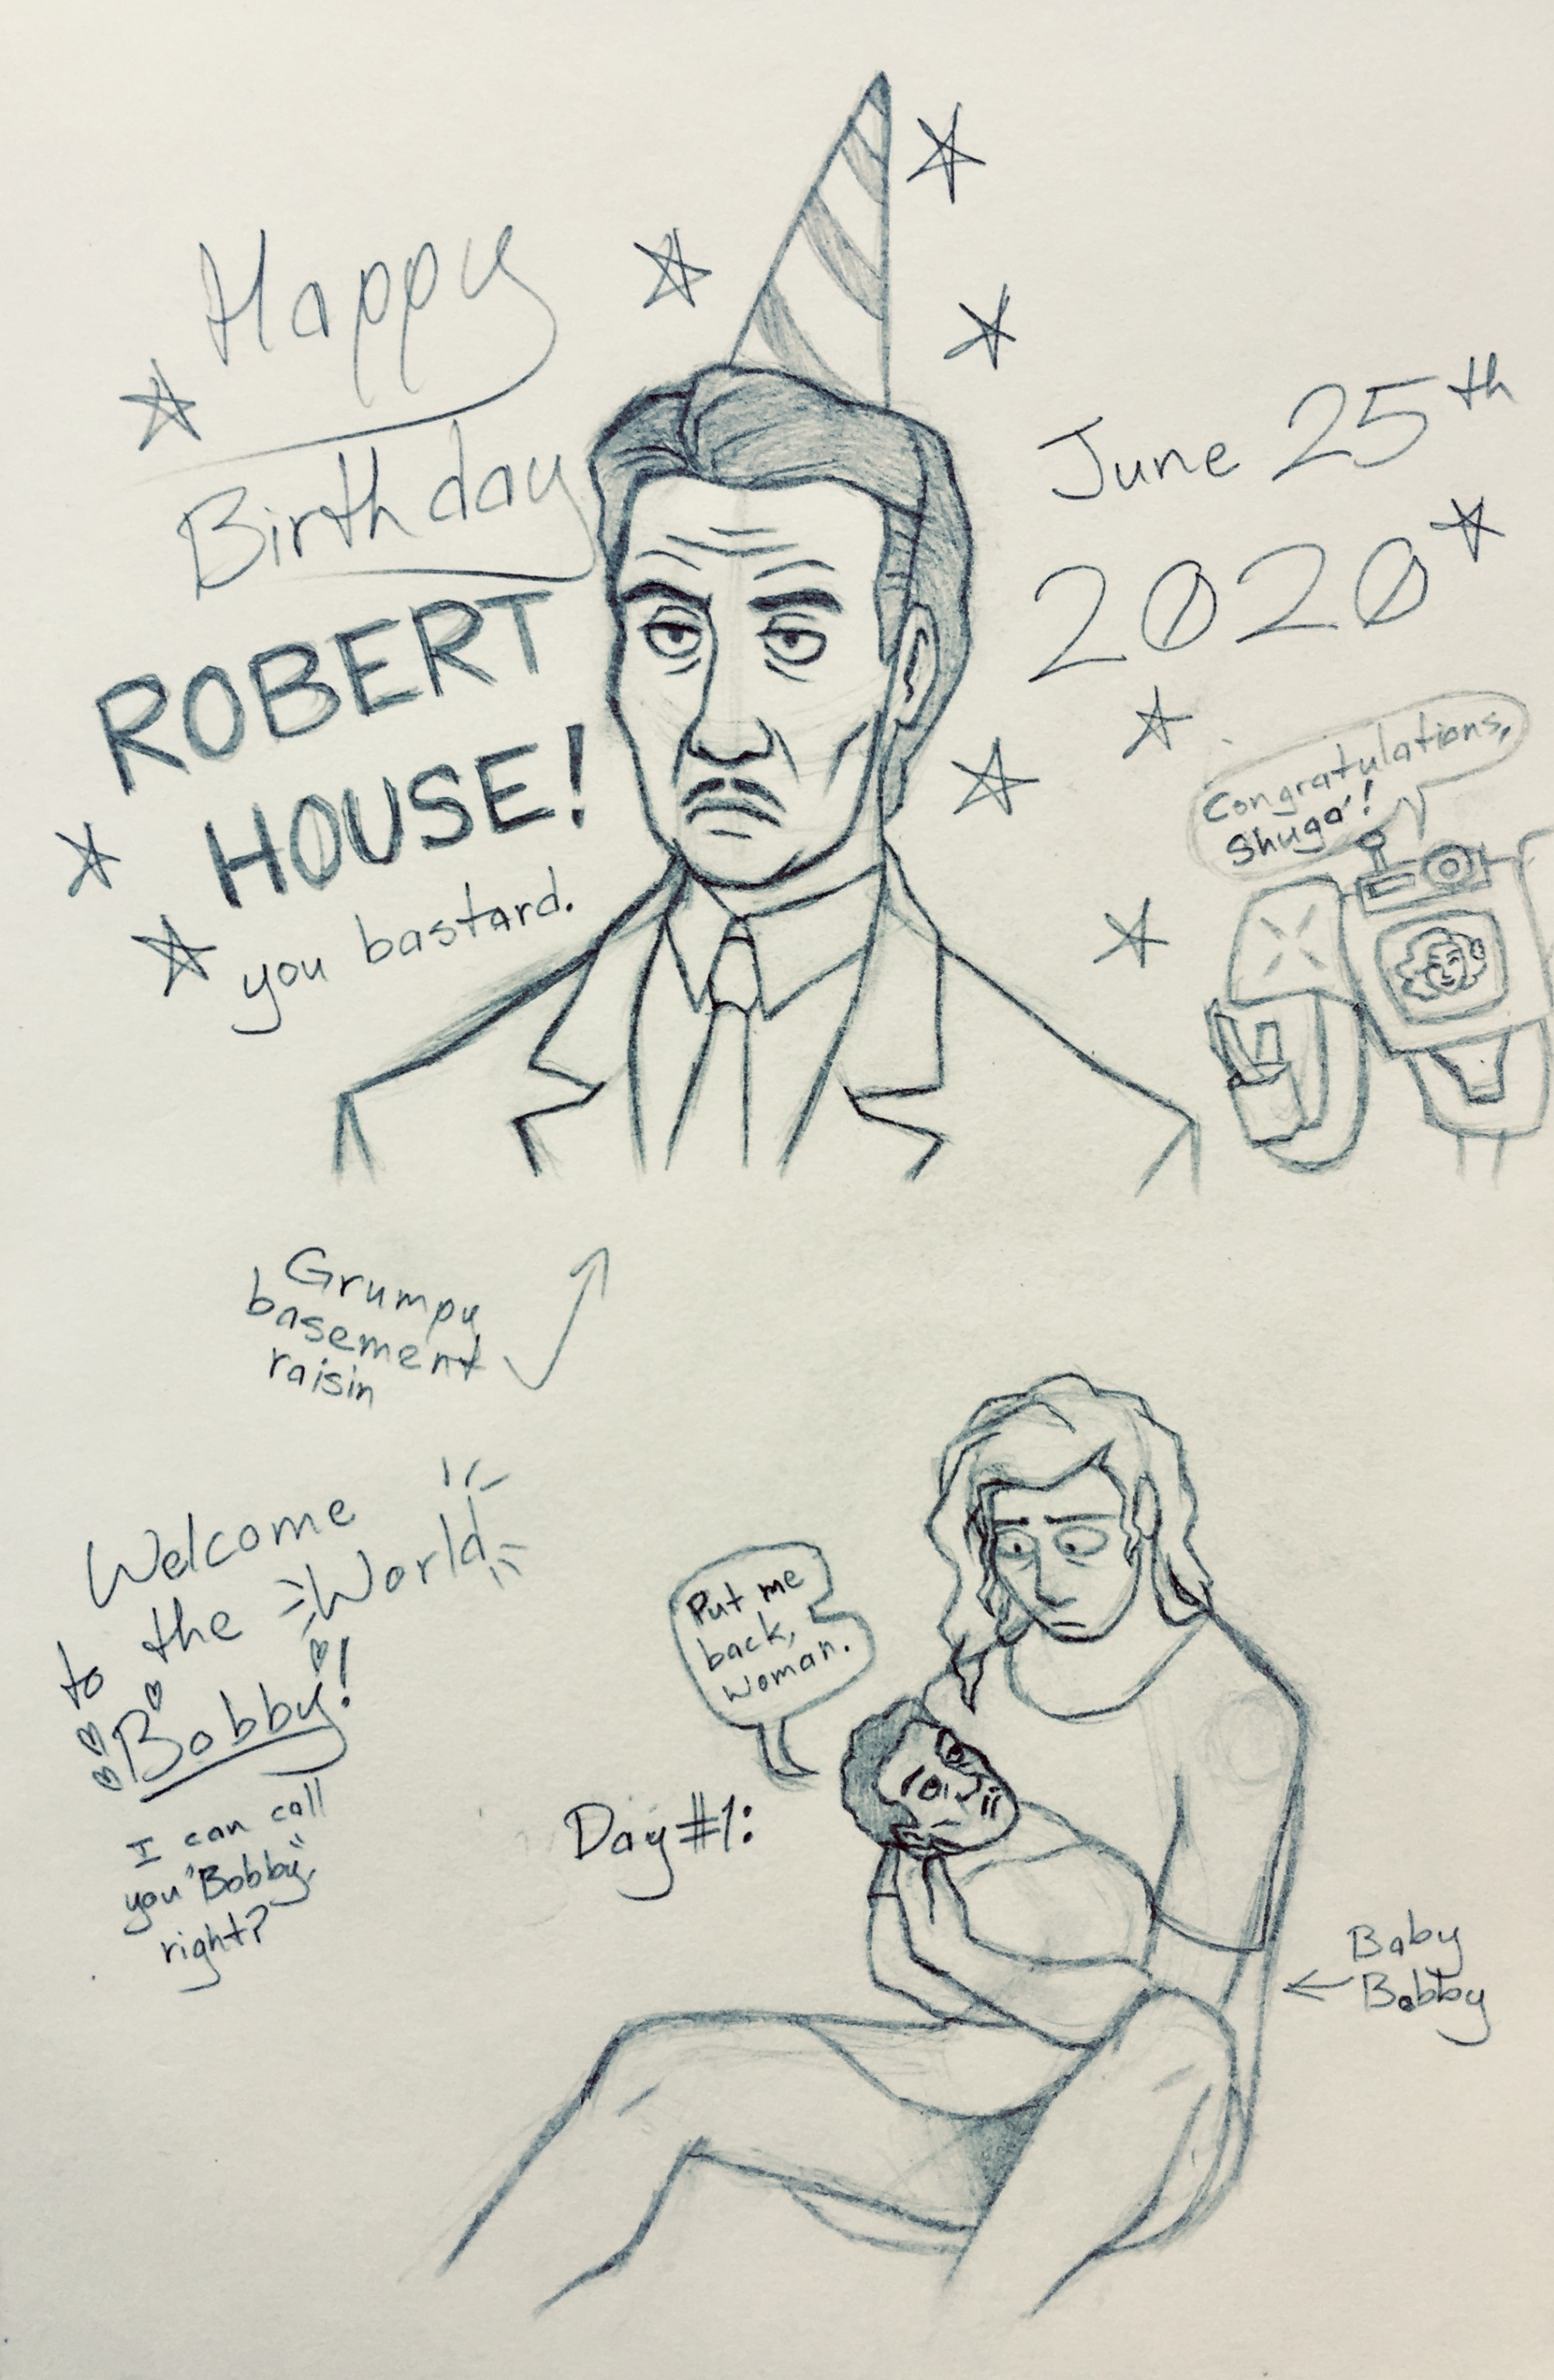 Happy
Birthday
ROBERT
HOUSE!
you bastard.
June 25th
2020
Congratulations,
Shuga'!
Grumpy
basement
raisin
Welcome
to the World
Bobby!
I can call
you "Bobby",
right?
Put me
back,
woman.
Day #1:
Baby
Bobby